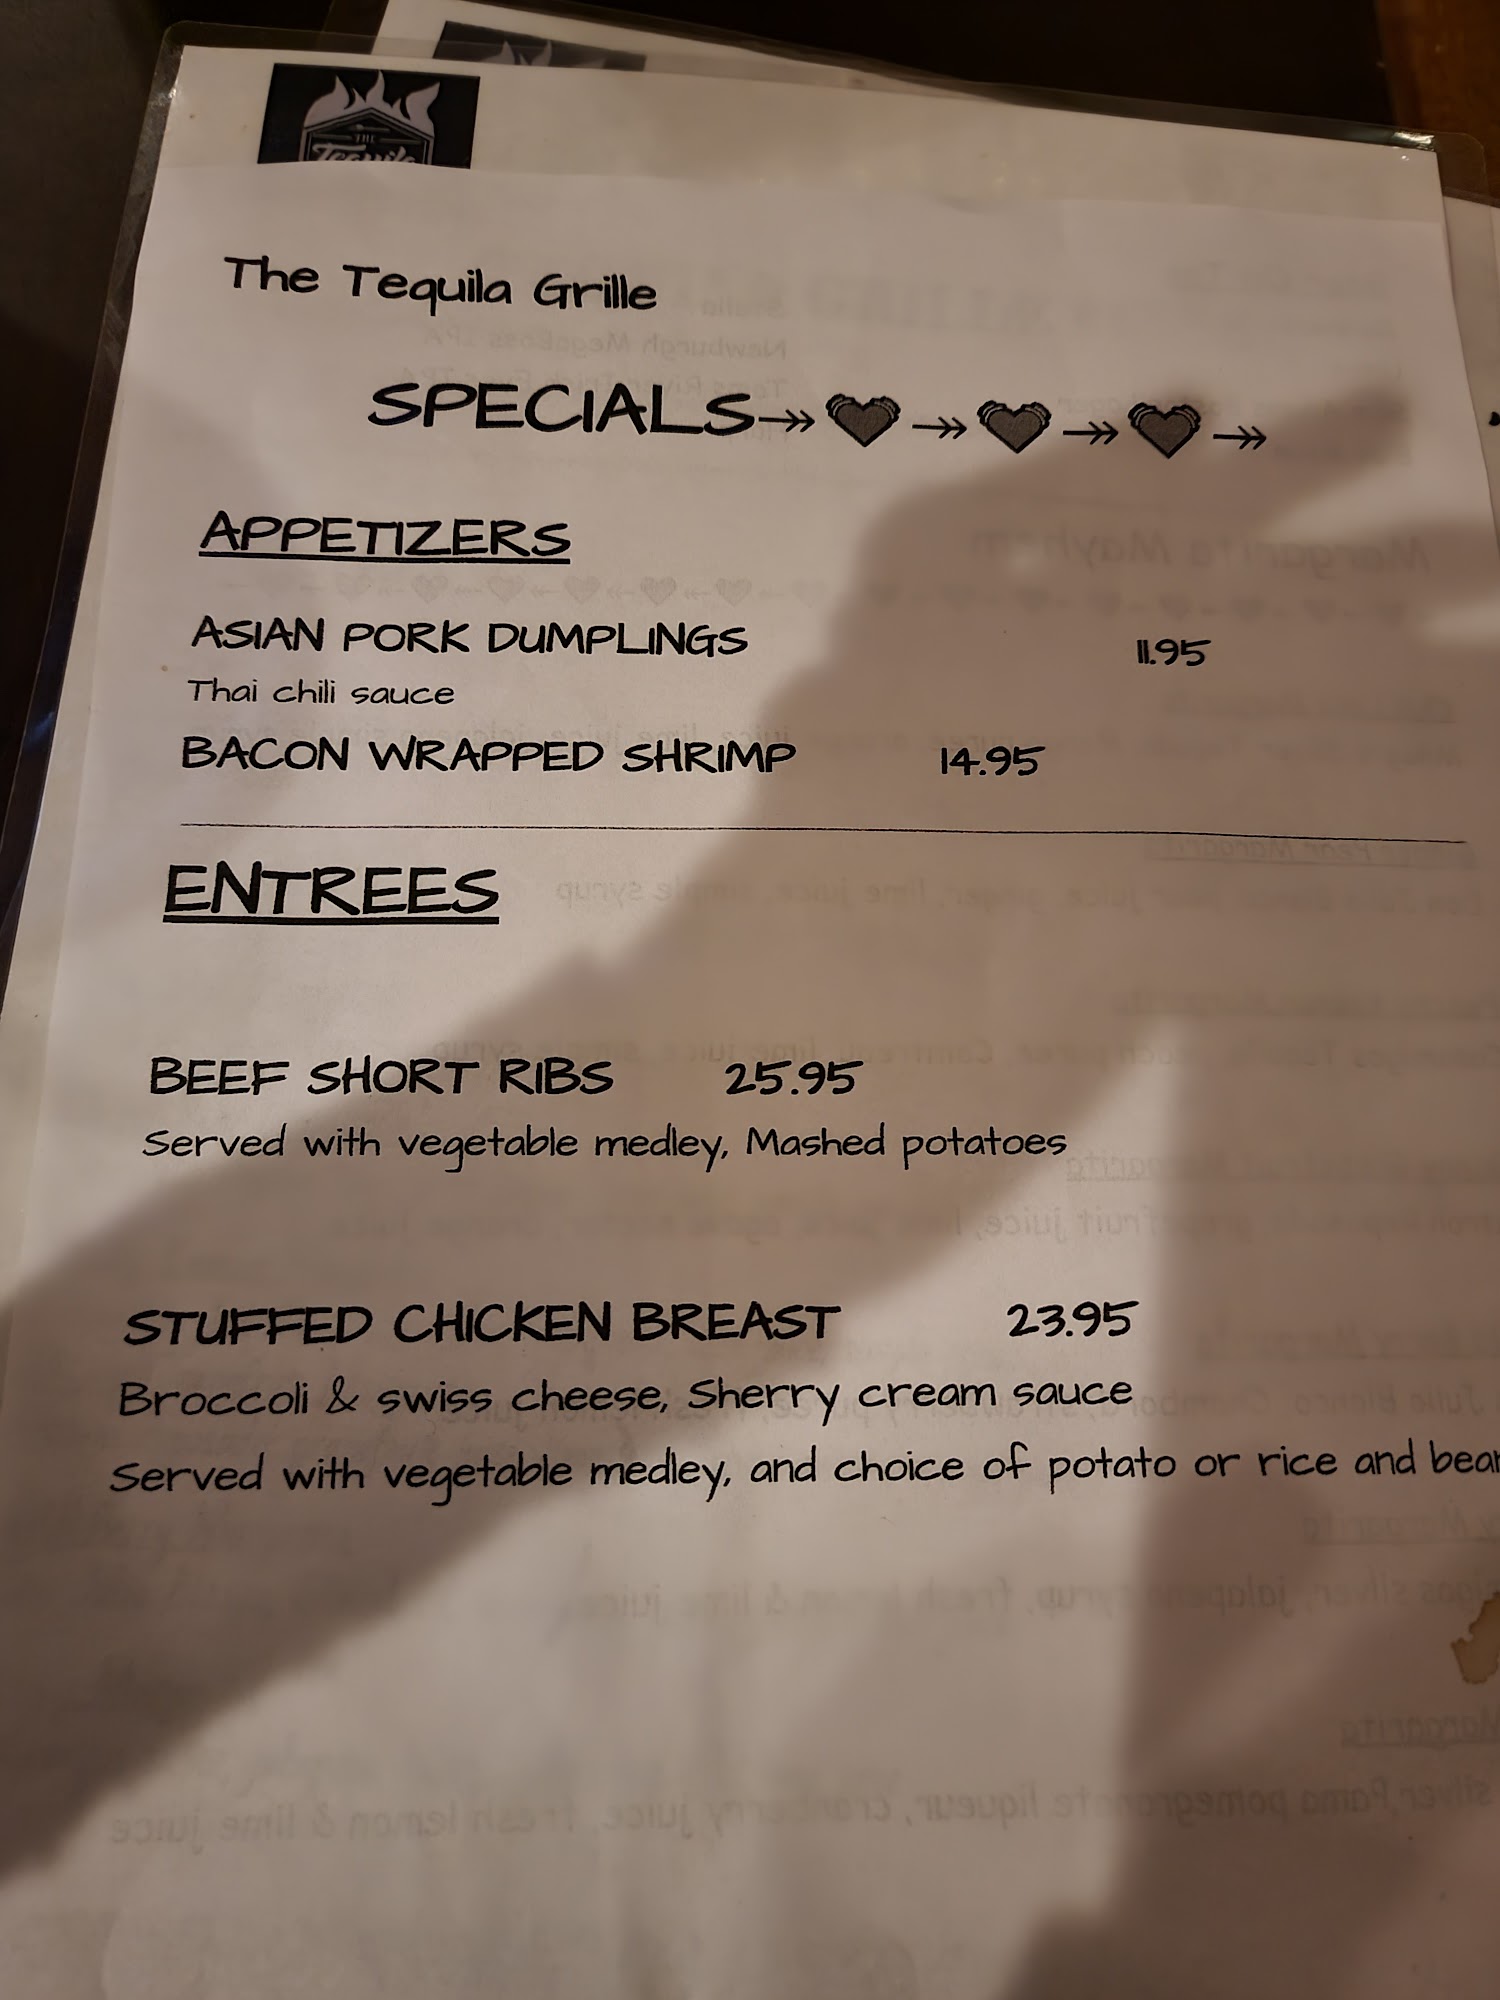 THE
Tequila
The Tequila Grille
SPECIALS
APPETIZERS
ASIAN PORK DUMPLINGS 11.95
Thai chili sauce
BACON WRAPPED SHRIMP 14.95
ENTREES
BEEF SHORT RIBS 25.95
Served with vegetable medley, Mashed potatoes
STUFFED CHICKEN BREAST 23.95
Broccoli & swiss cheese, Sherry cream sauce
Served with vegetable medley, and choice of potato or rice and bean